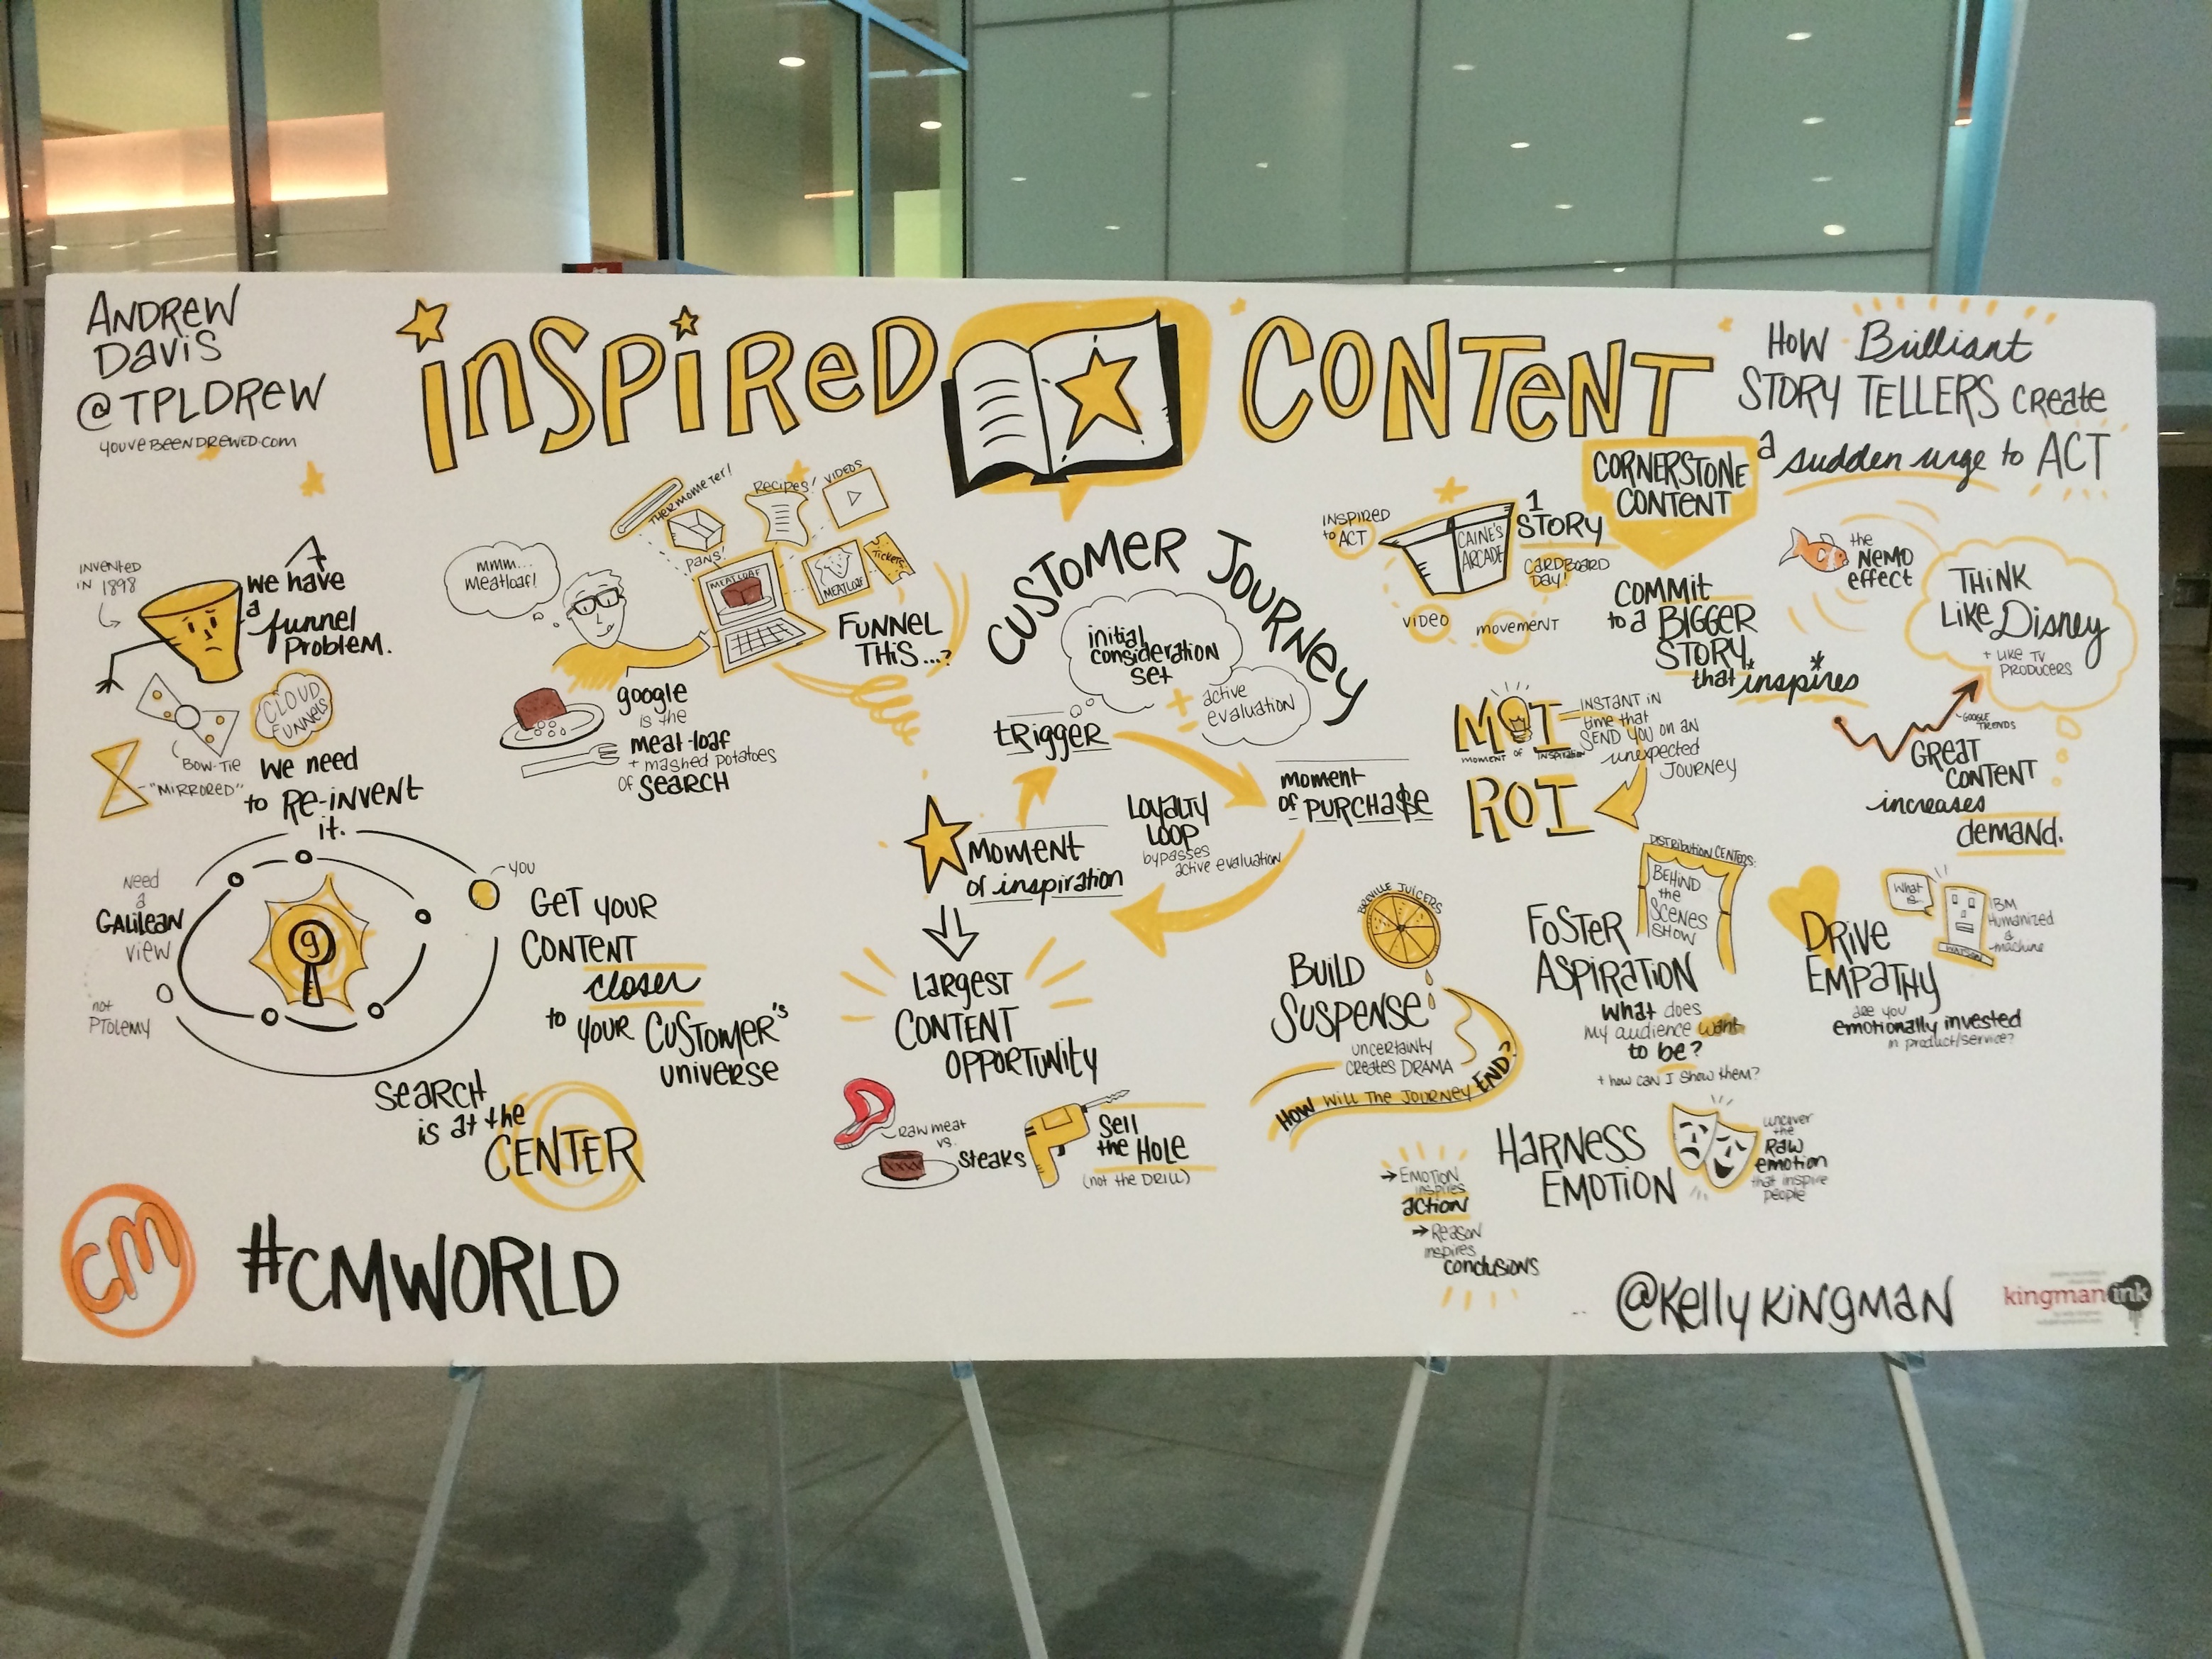 ANDREW
DAVIS
@TPLDREW
YOUVEBEENDREWED.COM
INSPIRED
CONTENT
HOW Brilliant
STORY TELLERS create
a sudden urge to ACT
INVENTED
IN 1898
we have
a funnel
problem.
CLOUD
FUNNELS
BOW-TIE
"MIRRORED"
we need
to RE-INVENT
it.
mmm...
meatloaf!
THERMOMETER!
PANS!
RECIPES!
VIDEOS
MEATLOAF
MEATLOAF
TICKETS
FUNNEL
THIS...?
google
is the
meat-loaf
+ mashed potatoes
OF SEARCH
Need
a
GALILEAN
view
not
PTOLEMY
g
YOU
GET YOUR
CONTENT
closer
to YOUR CUSTOMER'S
universe
SEARCH
is at the
CENTER
CUSTOMER JOURNEY
initial
consideration
set
+ active
evaluation
trigger
moment
of PURCHA$E
LOYALTY
LOOP
bypasses
active evaluation
MOMENT
of inspiration
LARGEST
CONTENT
OPPORTUNITY
RAW meat
vs.
STEAKS
Sell
the HOLE
(not the DRILL)
INSPIRED
to ACT
CAINE'S
ARCADE
1
STORY
CARDBOARD
DAY!
VIDEO
MOVEMENT
CORNERSTONE
CONTENT
COMMIT
to a BIGGER
STORY,
that inspires*
the
NEMO
effect
THINK
LIKE Disney
+ LIKE TV
PRODUCERS
GOOGLE
TRENDS
GREAT
CONTENT
increases
demand.
MOI
MOMENT OF INSPIRATION
INSTANT IN
time that
SEND YOU ON AN
unexpected
JOURNEY
ROI
BREVILLE JUICERS
BUILD
SUSPENSE
UNCERTAINTY
CREATES DRAMA
HOW WILL THE JOURNEY END?
DISTRIBUTION CENTERS:
BEHIND
the
SCENES
SHOW
FOSTER
ASPIRATION
What does
my audience want
to be?
+ how can I show them?
What
is...
WATSON
IBM
Humanized
a
machine
DRIVE
EMPATHY
are you
emotionally invested
in product/service?
HARNESS
EMOTION
uncover
the
RAW
emotion
that inspire
people
→ EMOTION
inspires
action
→ Reason
inspires
conclusions
CM
#CMWORLD
@Kelly KINGMAN
kingman ink